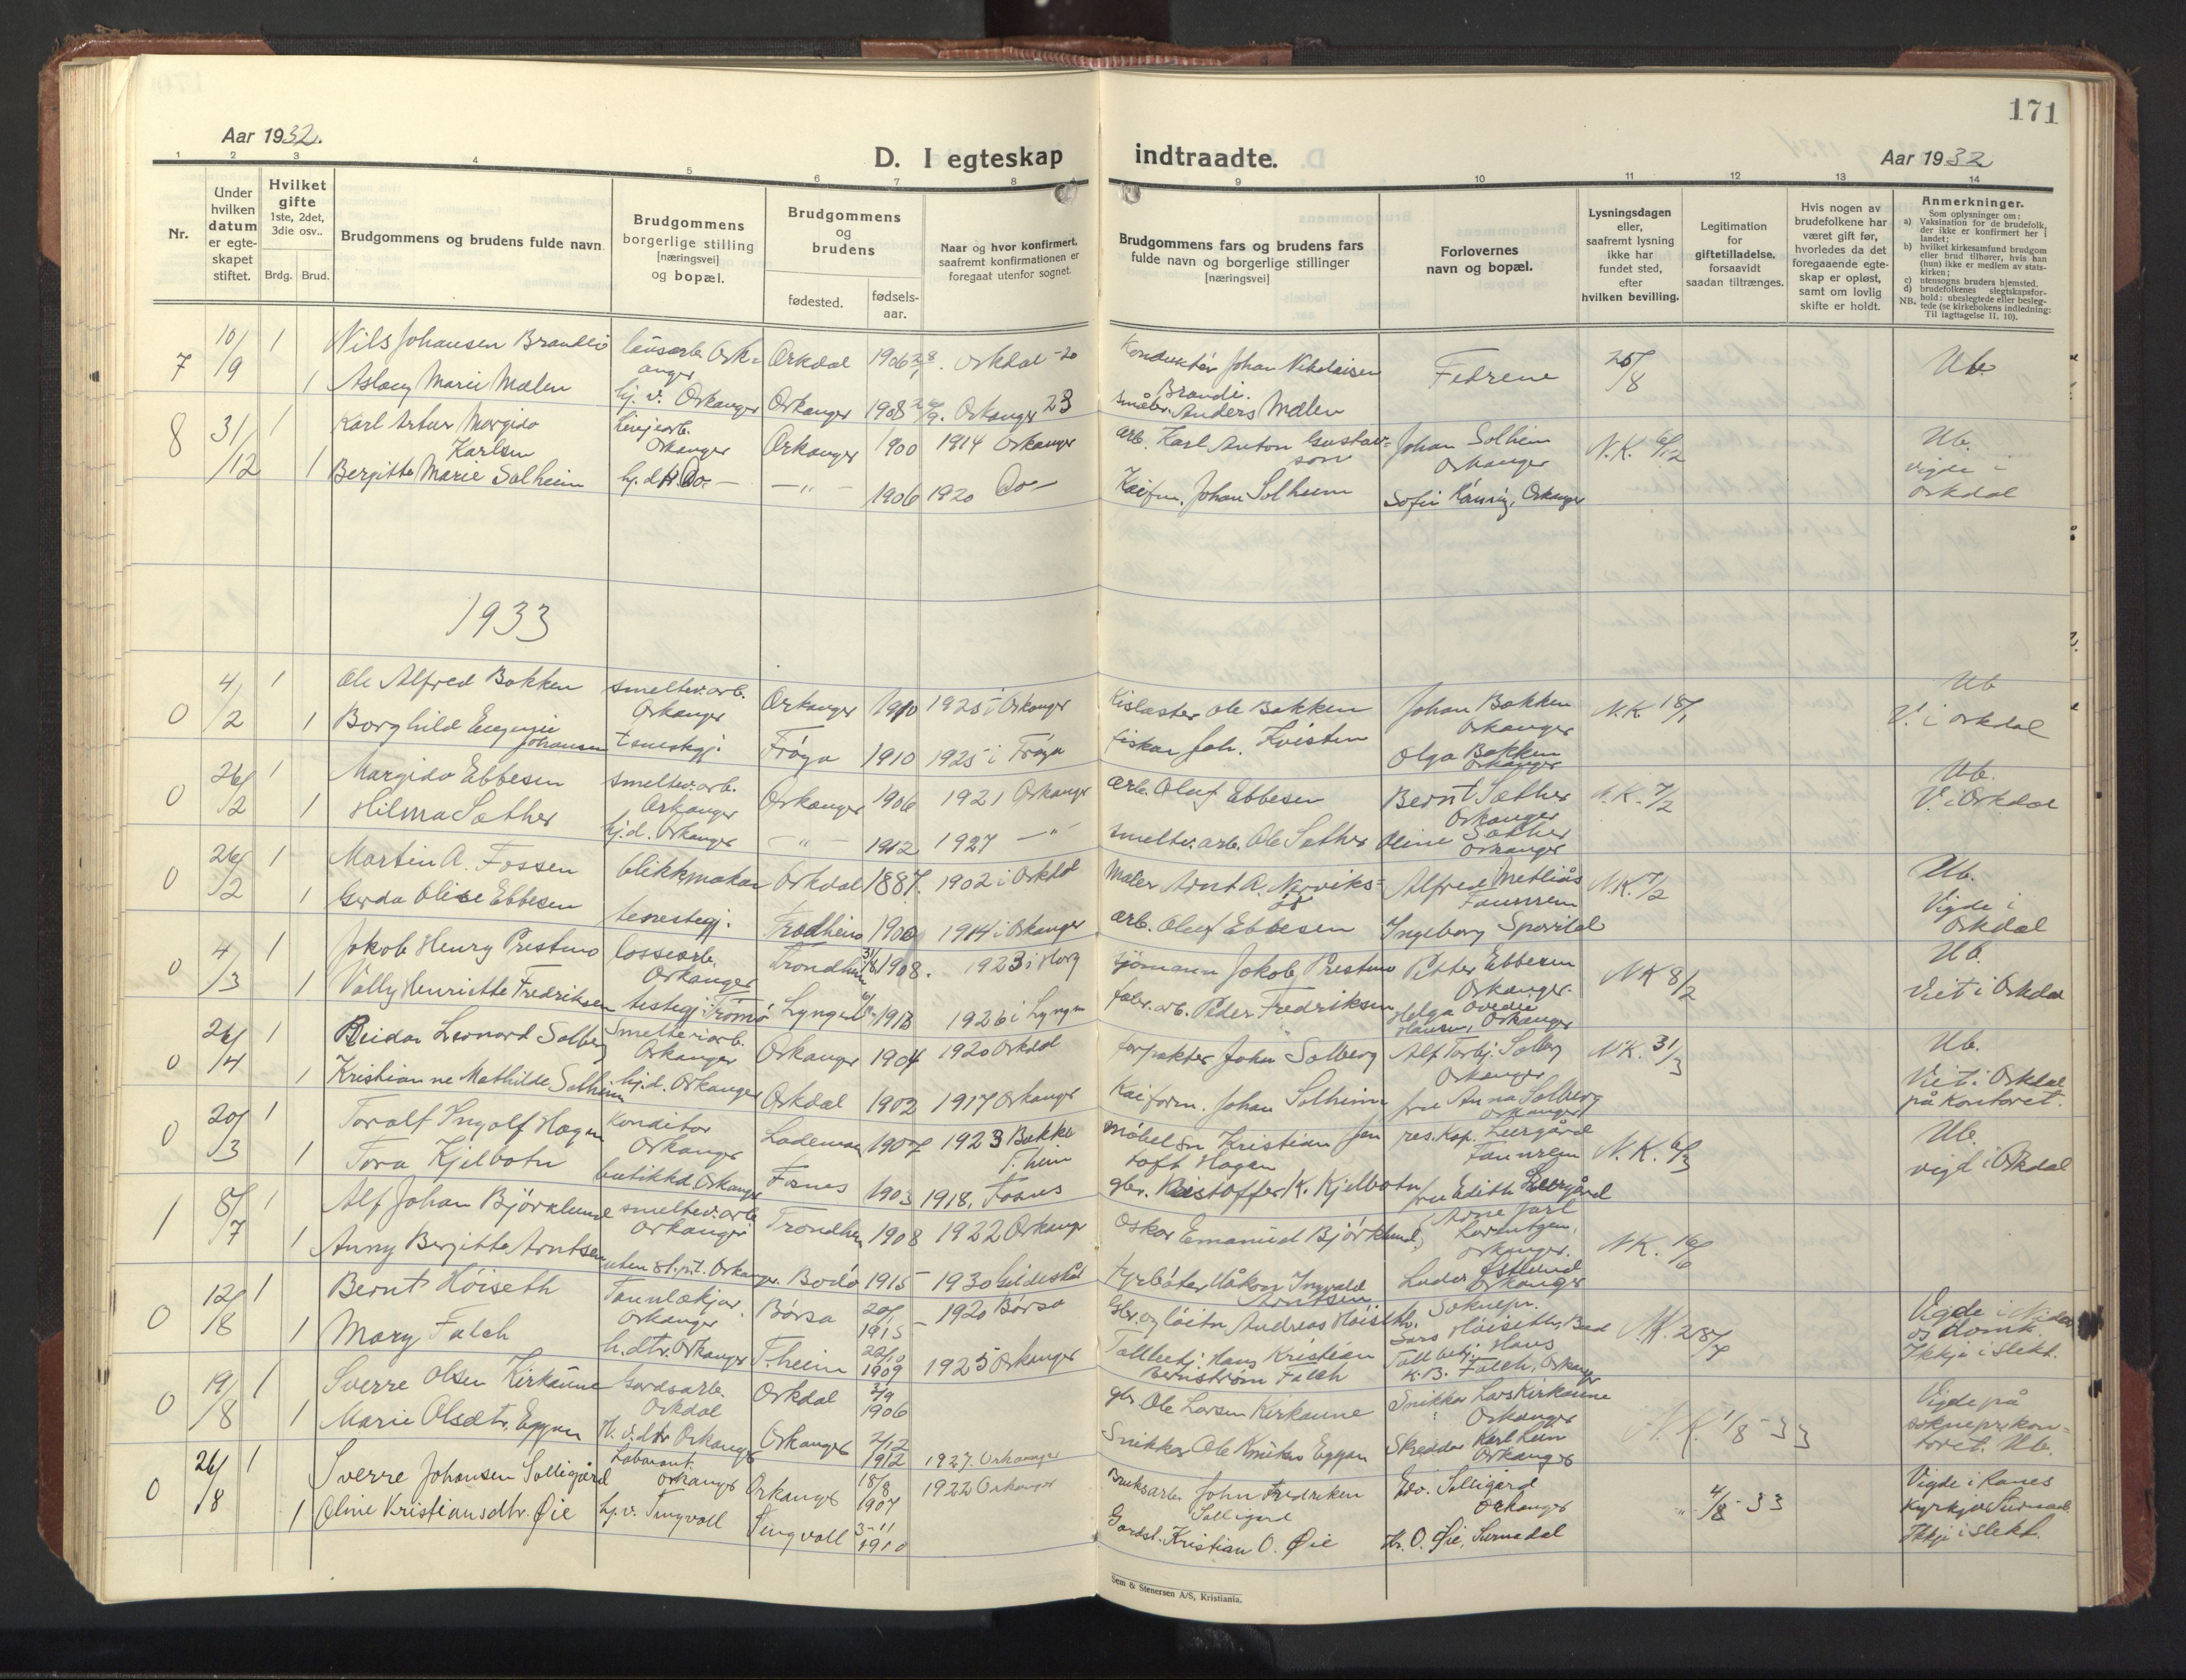 171
Aar 1932.
D. I egteskap indtraadte.
Aar 1932
1 2 3 4 5 6 7 8 9 10 11 12 13 14
Nr.
Under hvilken datum er egte-skapet stiftet.
Hvilket gifte 1ste, 2det, 3die osv..
Brdg. Brud.
Brudgommens og brudens fulde navn.
Brudgommens borgerlige stilling [næringsvei] og bopæl.
Brudgommens og brudens
fødested.
fødsels-aar.
Naar og hvor konfirmert, saafremt konfirmationen er foregaat utenfor sognet.
Brudgommens fars og brudens fars fulde navn og borgerlige stillinger [næringsvei]
Forlovernes navn og bopæl.
Lysningsdagen eller, saafremt lysning ikke har fundet sted, efter hvilken bevilling.
Legitimation for giftetilladelse. forsaavidt saadan tiltrænges.
Hvis nogen av brudefolkene har været gift før, hvorledes da det foregaaende egte-skap er opløst, samt om lovlig skifte er holdt.
Anmerkninger.
Som oplysninger om:
a) Vaksination for de brudefolk, der ikke er konfirmert her i landet;
b) hvilket kirkesamfund brudgom eller brud tilhører, hvis han (hun) ikke er medlem av stats-kirken;
c) utensogns bruders hjemsted.
d) brudefolkenes slegtskapsfor-hold: ubeslegtede eller besleg-tede (se kirkebokens indledning:
NB. Til iagttagelse II, 10).
7 10/9 1 Nils Johansen Brandli Orkanger Orkdal 1906 Orkdal -20 Konduktör Johan Nikolaisen Brandli. Fedrene 25/8 Ub.
1 Aslaug Marie Mælen hj. v. Orkanger Orkanger 1908 Orkanger 23 småbr. Anders Mælen
8 31/12 1 Karl Artur Margido Karlsen linjearb. Orkanger Orkanger 1900 1914 Orkanger arb. Karl Anton Gustavson Johan Solheim Orkanger N.K. 6/12 Ub. vigde i Orkdal
1 Bergitte Marie Solheim hj.d. Do. - " - 1906 1920 Do - Kaifm. Johan Solheim Sofie Orkanger
1933
0 4/2 1 Ole Alfred Bakken smeltev.arb. Orkanger Orkanger 1910 1925 i Orkanger Kislaster Ole Bakken Johan Bakken Orkanger N.K. 18/1 Ub V. i Orkdal
1 Borghild Eugenie Johansen tenestegj. Frøya 1910 1925 i Frøya fiskar Joh. Kvisten Olga Bakken Orkanger
0 26/2 1 Margido Ebbesen smeltev.arb. Orkanger Orkanger 1906 1921 Orkanger arb. Oluf Ebbesen Bernt Sæther Orkanger N.K. 7/2 Ub. V. i Orkdal
1 Hilma Sæther hj.d. Orkanger - " - 1912 1927 - " - smeltev.arb. Ole Sæther Oline Sæther Orkanger
0 26/2 1 Martin A. Fossen blikkmakar Orkdal 1887. 1902 i Orkdal Maler Arnt A. Alfred Metliås Fannrem N.K. 7/2 Ub. Vigde i Orkdal
1 Gerda Olise Ebbesen tenestegj. Trondheim 1900 1914 i Orkanger arb. Oluf Ebbesen Ingeborg
0 4/3 1 Jakob Henry Prestmo lossearb. Orkanger Trondheim 3/8 1908. 1923 i Horg sjömann Jakob Prestmo Petter Ebbesen Orkanger. N.K 8/2 Ub. Viet i Orkdal
1 Vally Henriette Fredriksen Tromsø Lyngen 1913 1926 i Lyngen fabr.arb. Peder Fredriksen Helga Hansen, Orkanger
0 26/4 1 Reidar Leonard Solberg Smelteriarb. Orkanger Orkanger 1904 1920 Orkdal forpakter John Solberg Alf Torbj. Solberg Orkanger N.K. 31/3 Ub. Viet i Orkdal på Kontoret.
1 Kristianne Mathilde Solheim hj.d. Orkanger Orkdal 1902 1917 Orkanger Kaiform. Johan Solheim fru Anna Solberg Orkanger
0 20/3 1 Toralf Ingolf Hagen Konditor Orkanger Lademoen 1907 1923 Bakke T.heim Möbelsn Kristian Jentoft Hagen res. Kap. Leergård Fannrem N.K. 6/3 Ub. vigd i Orkdal
1 Tora Kjelbotn butikkd. Orkanger Fosnes 1903 1918, Fosnes gbr. Kristoffer K. Kjelbotn fru Edith Leergård
1 8/7 1 Alf Johan Björklund smeltev.arb. Orkanger Trondheim 1908 1922 Orkanger Oskar Emanuel Björklund, Arne Jarl Lorentzen, Orkanger. N.K. 16/6
1 Anny Bergitte Arntsen uten st.pt. Orkanger. Bodö 1915 1930 Gildeskål fyrböter Håkon Ingvald Arntsen Östlund Orkanger
0 12/8 1 Bernt Höiseth Tannlækjar. Orkanger Börsa 20/1 1915 - 1920 Börsa Gbr. og Andreas Höiseth. Soknepr. Lars Höiseth, Bud N.K. 28/7 Vigde i Nidaros domk. Ikkje i slekt.
1 Mary Falch h.dtr. Orkanger T.heim 22/10 1909 1925 Orkanger Tollbetj. Hans Kristian Bernstrøm Falch Tollbetj. Hans K.B. Falch, Orkanger
0 19/8 1 Sverre Olsen Kirkaune Gardsarb. Orkdal Orkdal 3/9 1906 gbr. Ole Larsen Kirkaune Snikkar Lars Kirkaune Orkanger N.K. 1/8 - 33 Vigde på soknepr.kontoret. Ub.
1 Marie Olsdtr. Eggan H.v.dtr Orkanger Orkanger 2/12 1912 1927. Orkanger Snikkar Ole Knutsen Eggan Skreddar Karl Orkanger
0 26/8 1 Sverre Johansen Solligård Laborant. Orkanger Orkanger 18/8 1907 1922 Orkanger Bruksarb. John Fredriksen Solligård Edv. Solligård Orkanger " 4/8 - 33 Vigde i Ranes Kyrkje Surnadal Ikkje i slekt.
1 Oline Kristiansdtr. Øie hj.v. Tingvoll Tingvoll 3-11 1910 Gardsl. Kristian O. Øie Kr. O. Øie, Surnadal
Sem & Stenersen A/S, Kristiania.